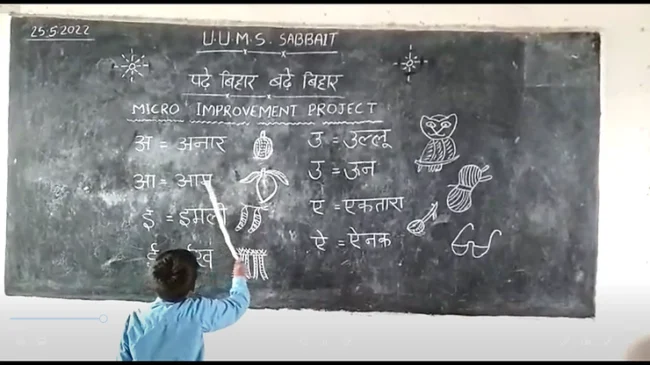 25.5.2022
U.U.M.S. SABBAIT
पढ़े बिहार बढ़े बिहार
MICRO IMPROVEMENT PROJECT
अ = अनार
आ = आम
इ = इमली
उ = उल्लू
उ = ऊन
ए = एकतारा
ऐ = ऐनक